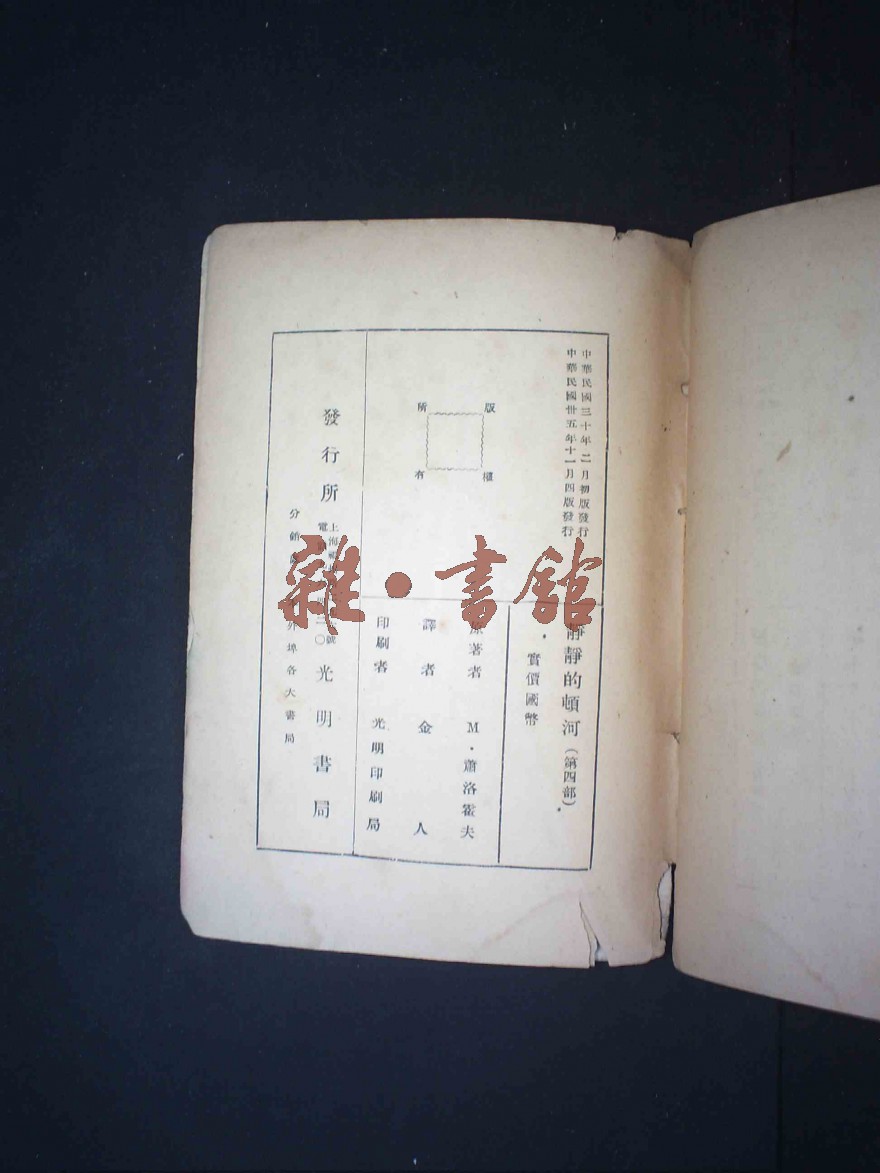 中華民國三十年二月初版發行
中華民國卅五年十一月四版發行
版權所有
靜靜的頓河(第四部)
實價國幣
原著者 M·蕭洛霍夫
譯者 金人
印刷者 光明印刷局
發行所 光明書局
上海
電
號
二〇
分銷
外埠各大書局
雜·書館